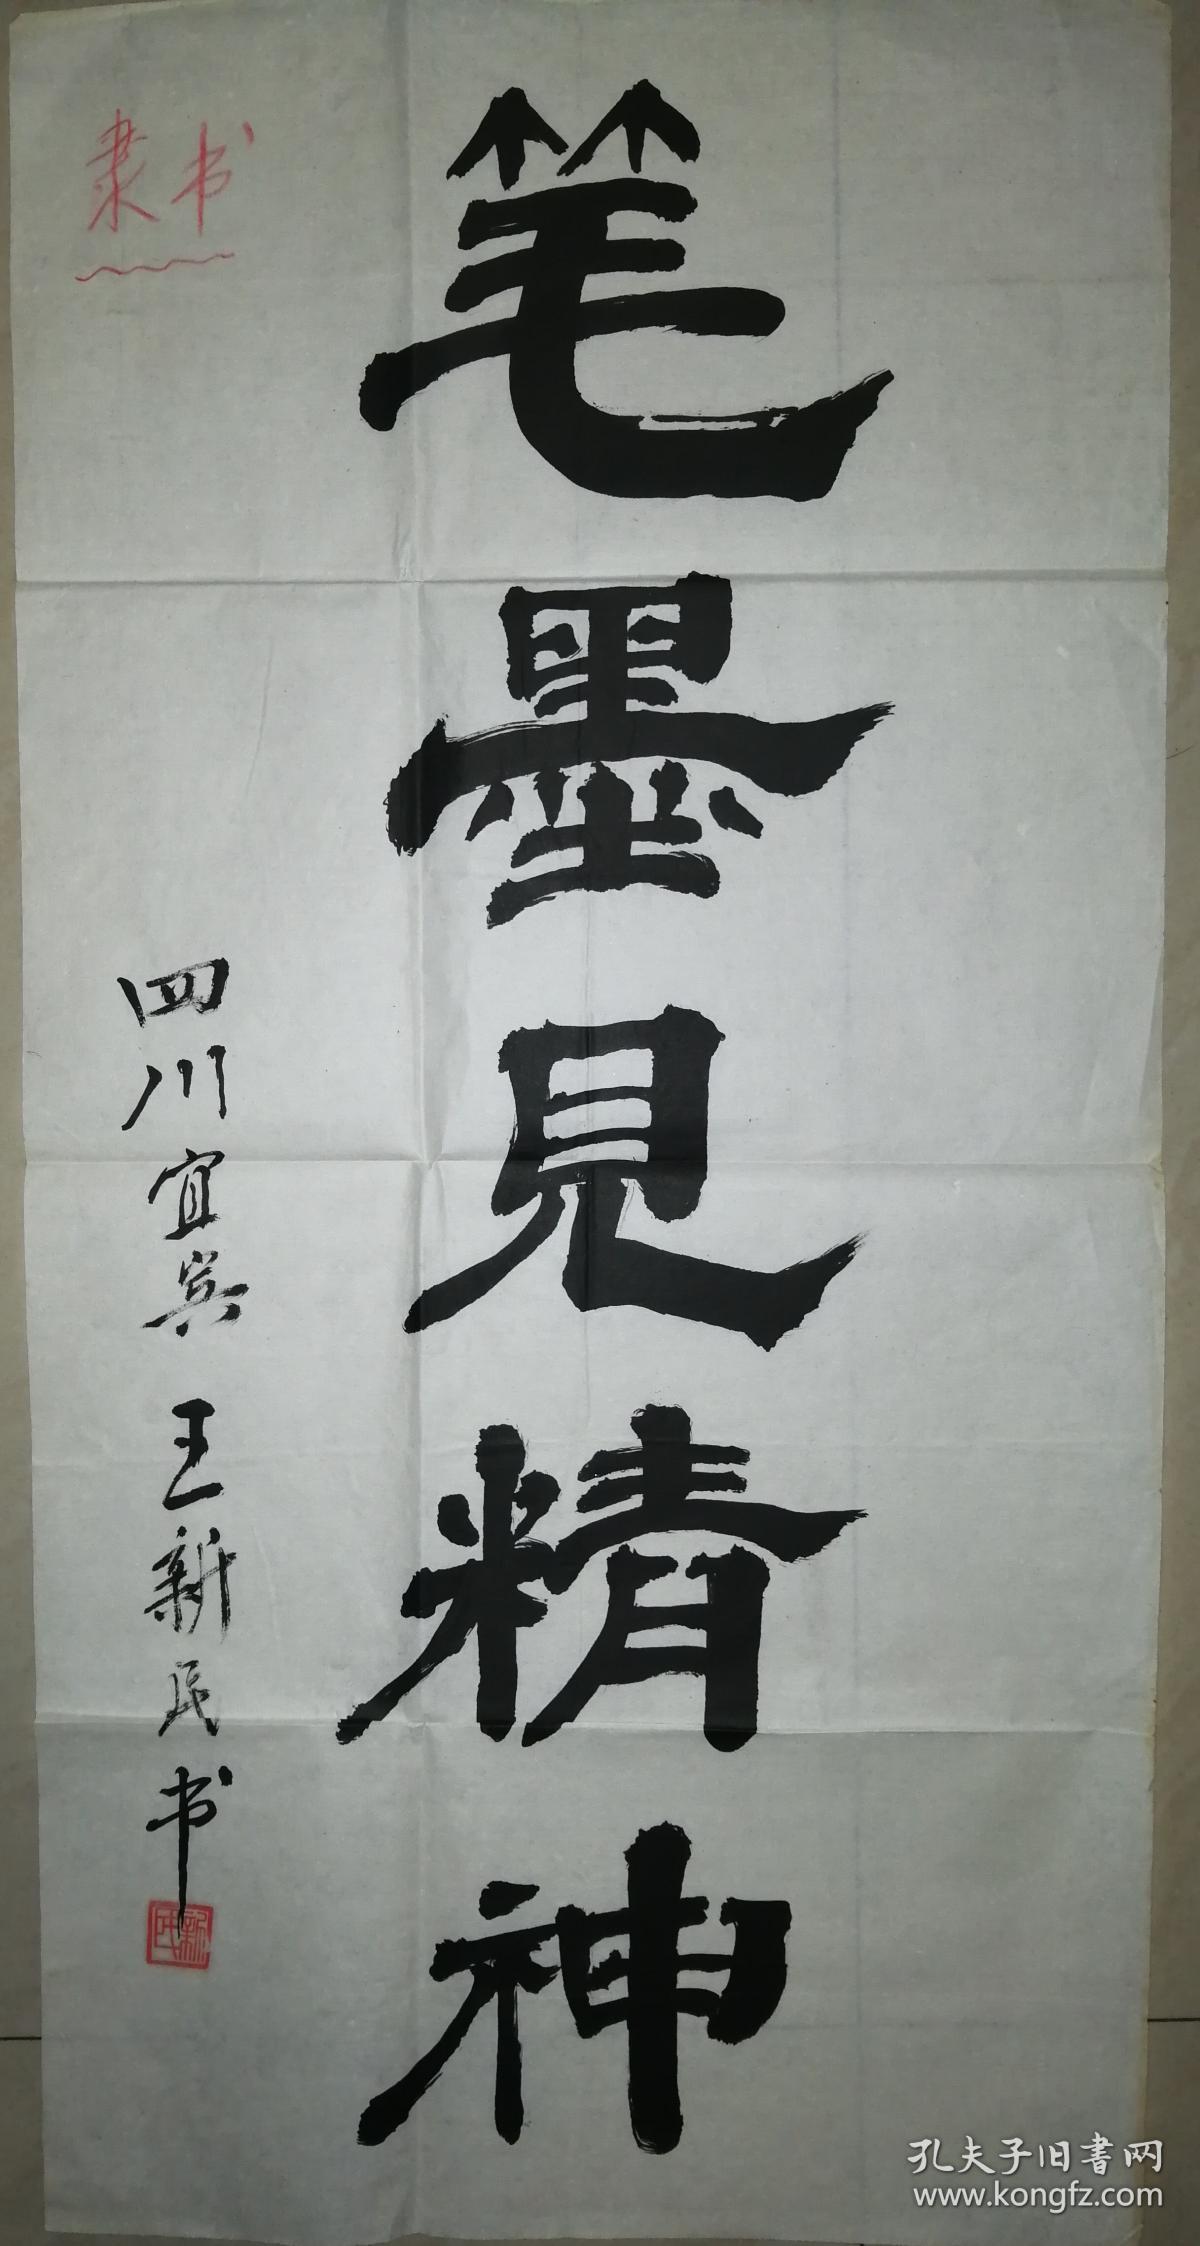 笔墨見精神
四川宜宾 王新民书
新民
隶书
孔夫子旧書网
www.kongfz.com